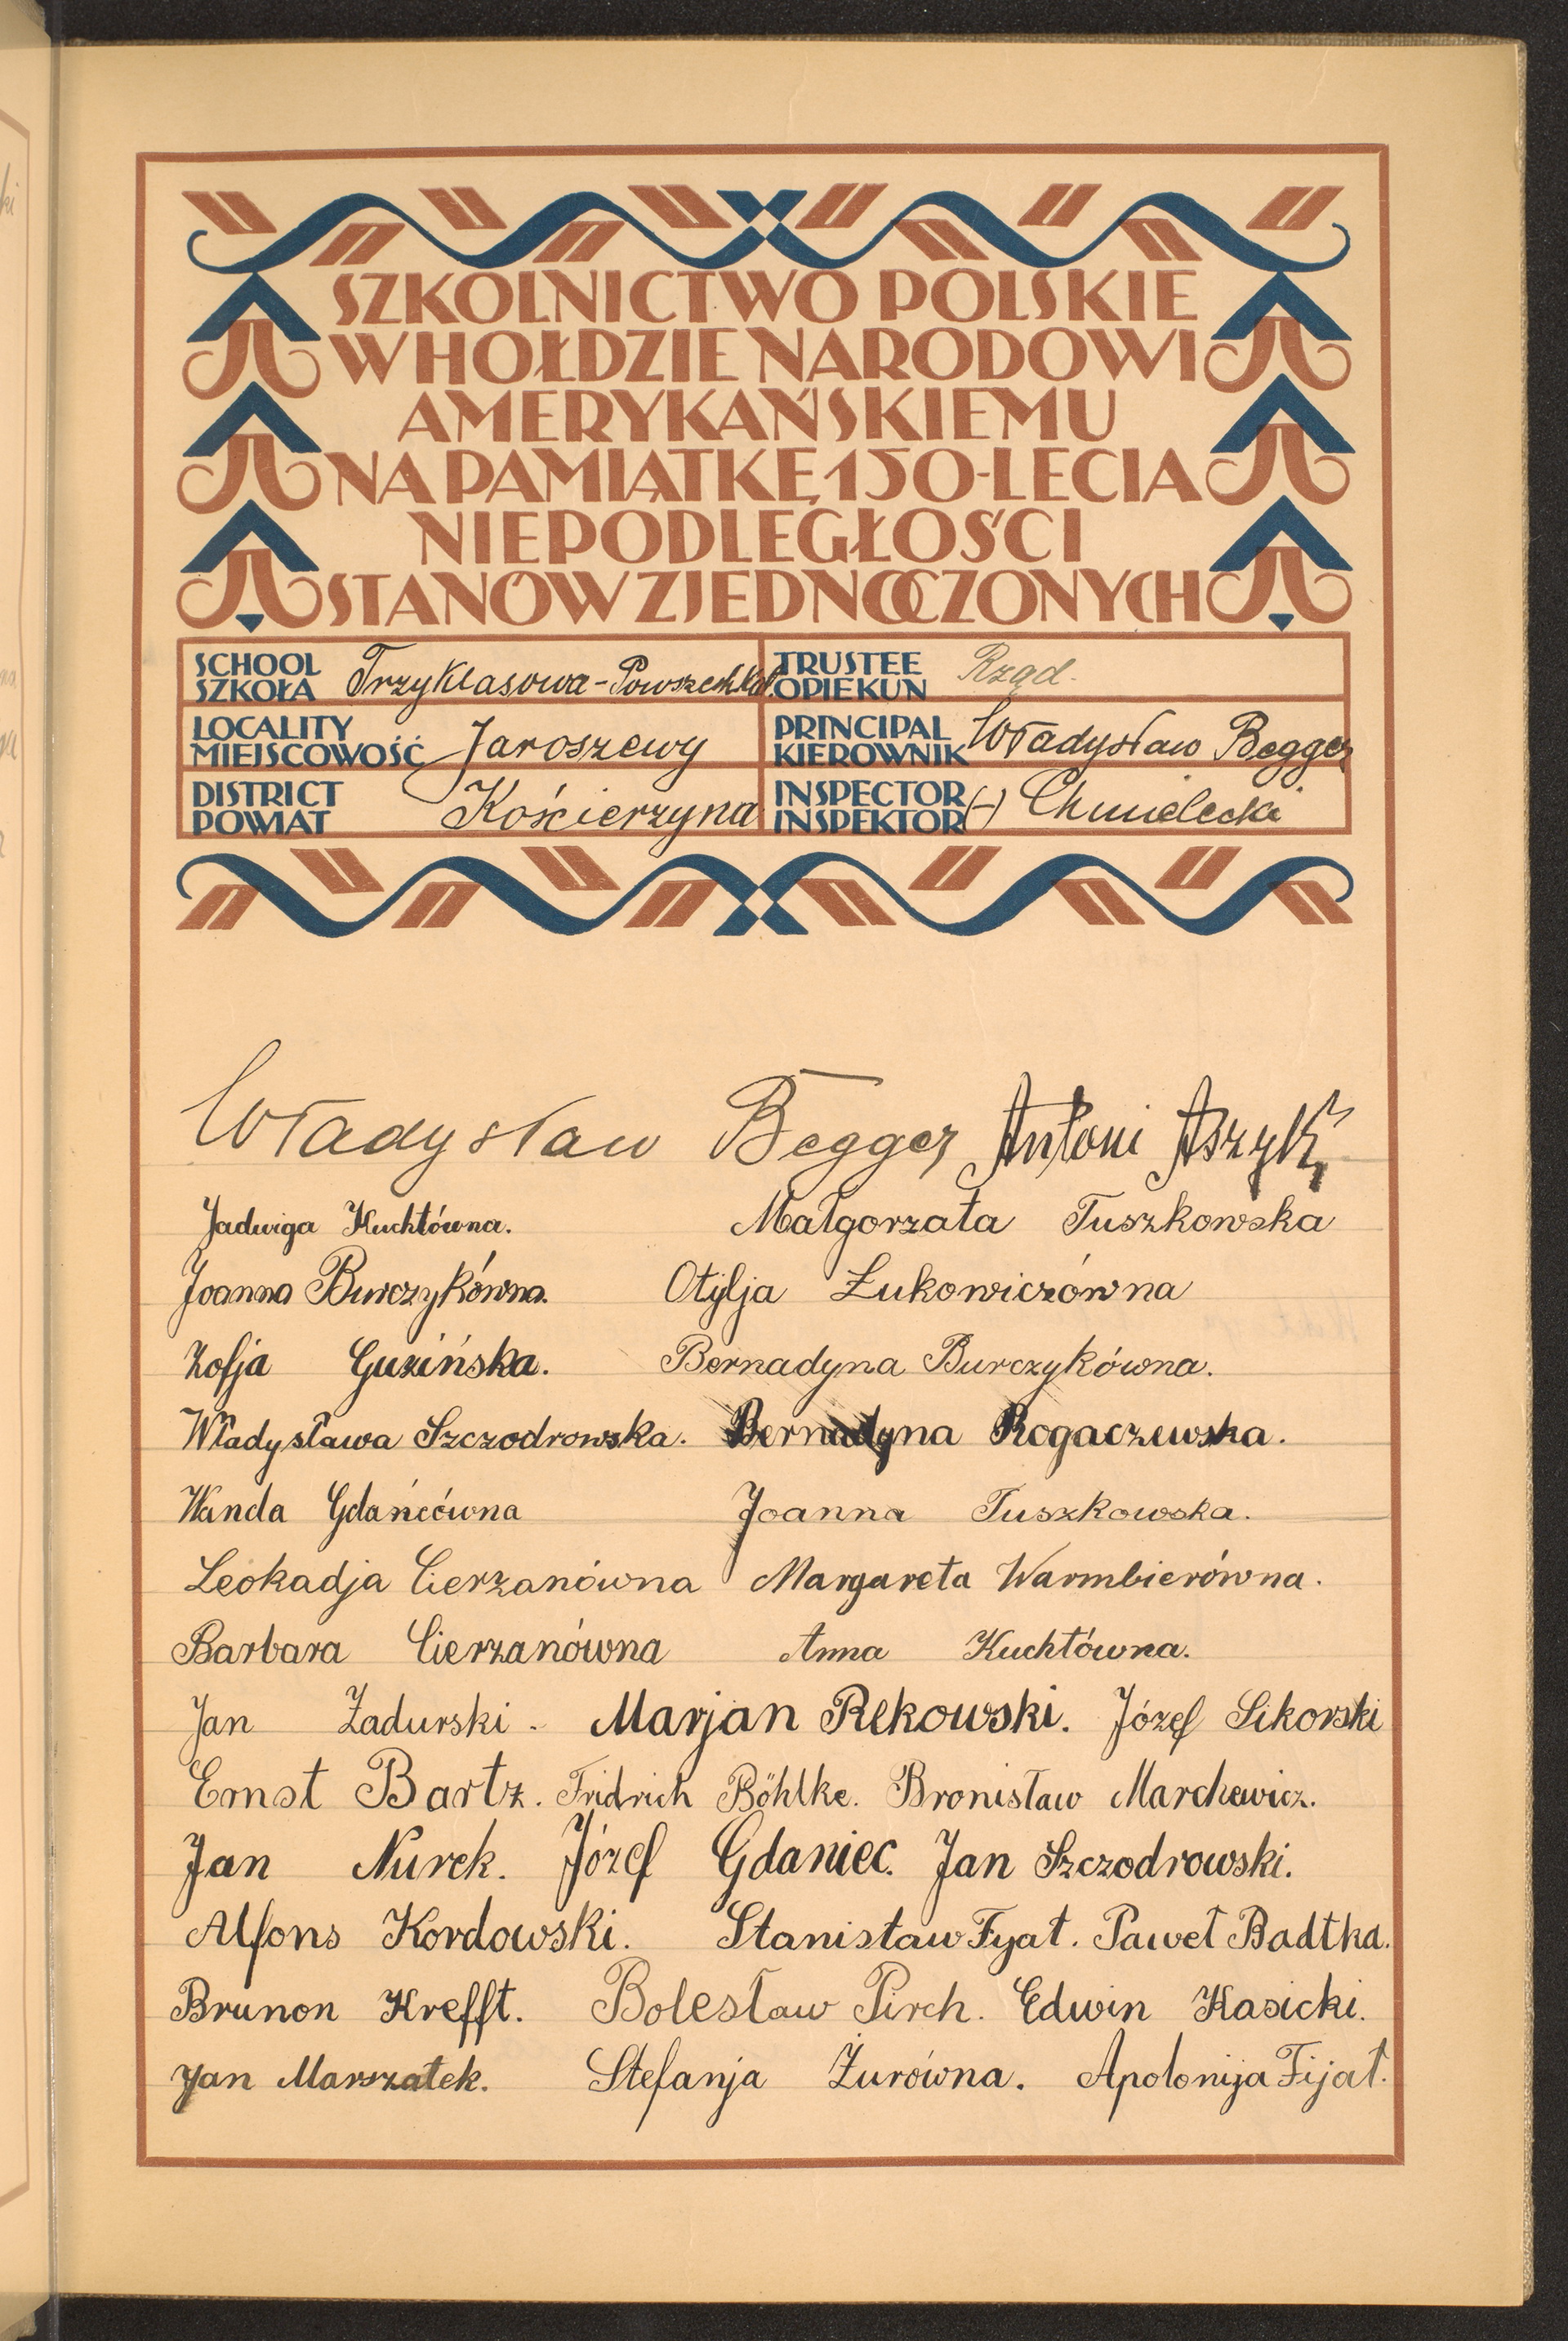 SZKOLNICTWO POLSKIE
W HOŁDZIE NARODOWI
AMERYKAŃSKIEMU
NA PAMIĄTKĘ 150-LECIA
NIEPODLEGŁOŚCI
STANÓW ZJEDNOCZONYCH
SCHOOL
SZKOŁA Trzyklasowa-Powszechna
TRUSTEE
OPIEKUN Rząd.
LOCALITY
MIEJSCOWOŚĆ Jaroszewy
PRINCIPAL
KIEROWNIK Władysław Begger
DISTRICT
POWIAT Kościerzyna
INSPECTOR
INSPEKTOR (-) Chmielecki
Władysław Begger Antoni Aszyk
Jadwiga Kuchtówna. Małgorzata Tuszkowska
Joanna Burczykówna. Otylja Łukowiczówna
Zofja Guzińska. Bernadyna Burczykówna.
Władysława Szczodrowska. Bernadyna Rogaczewska.
Wanda Gdańcówna Joanna Tuszkowska.
Leokadja Cierzanówna Margareta Warmbierówna.
Barbara Cierzanówna Anna Kuchtówna.
Jan Żadurski - Marjan Rekowski. Józef Sikorski
Ernst Bartz. Fridrich Böhlke. Bronisław Marchewicz.
Jan Nurek. Józef Gdaniec. Jan Szczodrowski.
Alfons Kordowski. Stanisław Fyał. Paweł Badtka.
Brunon Krefft. Bolesław Pirch. Edwin Kasicki.
Jan Marszałek. Stefanja Żurówna. Apolonija Fijał.